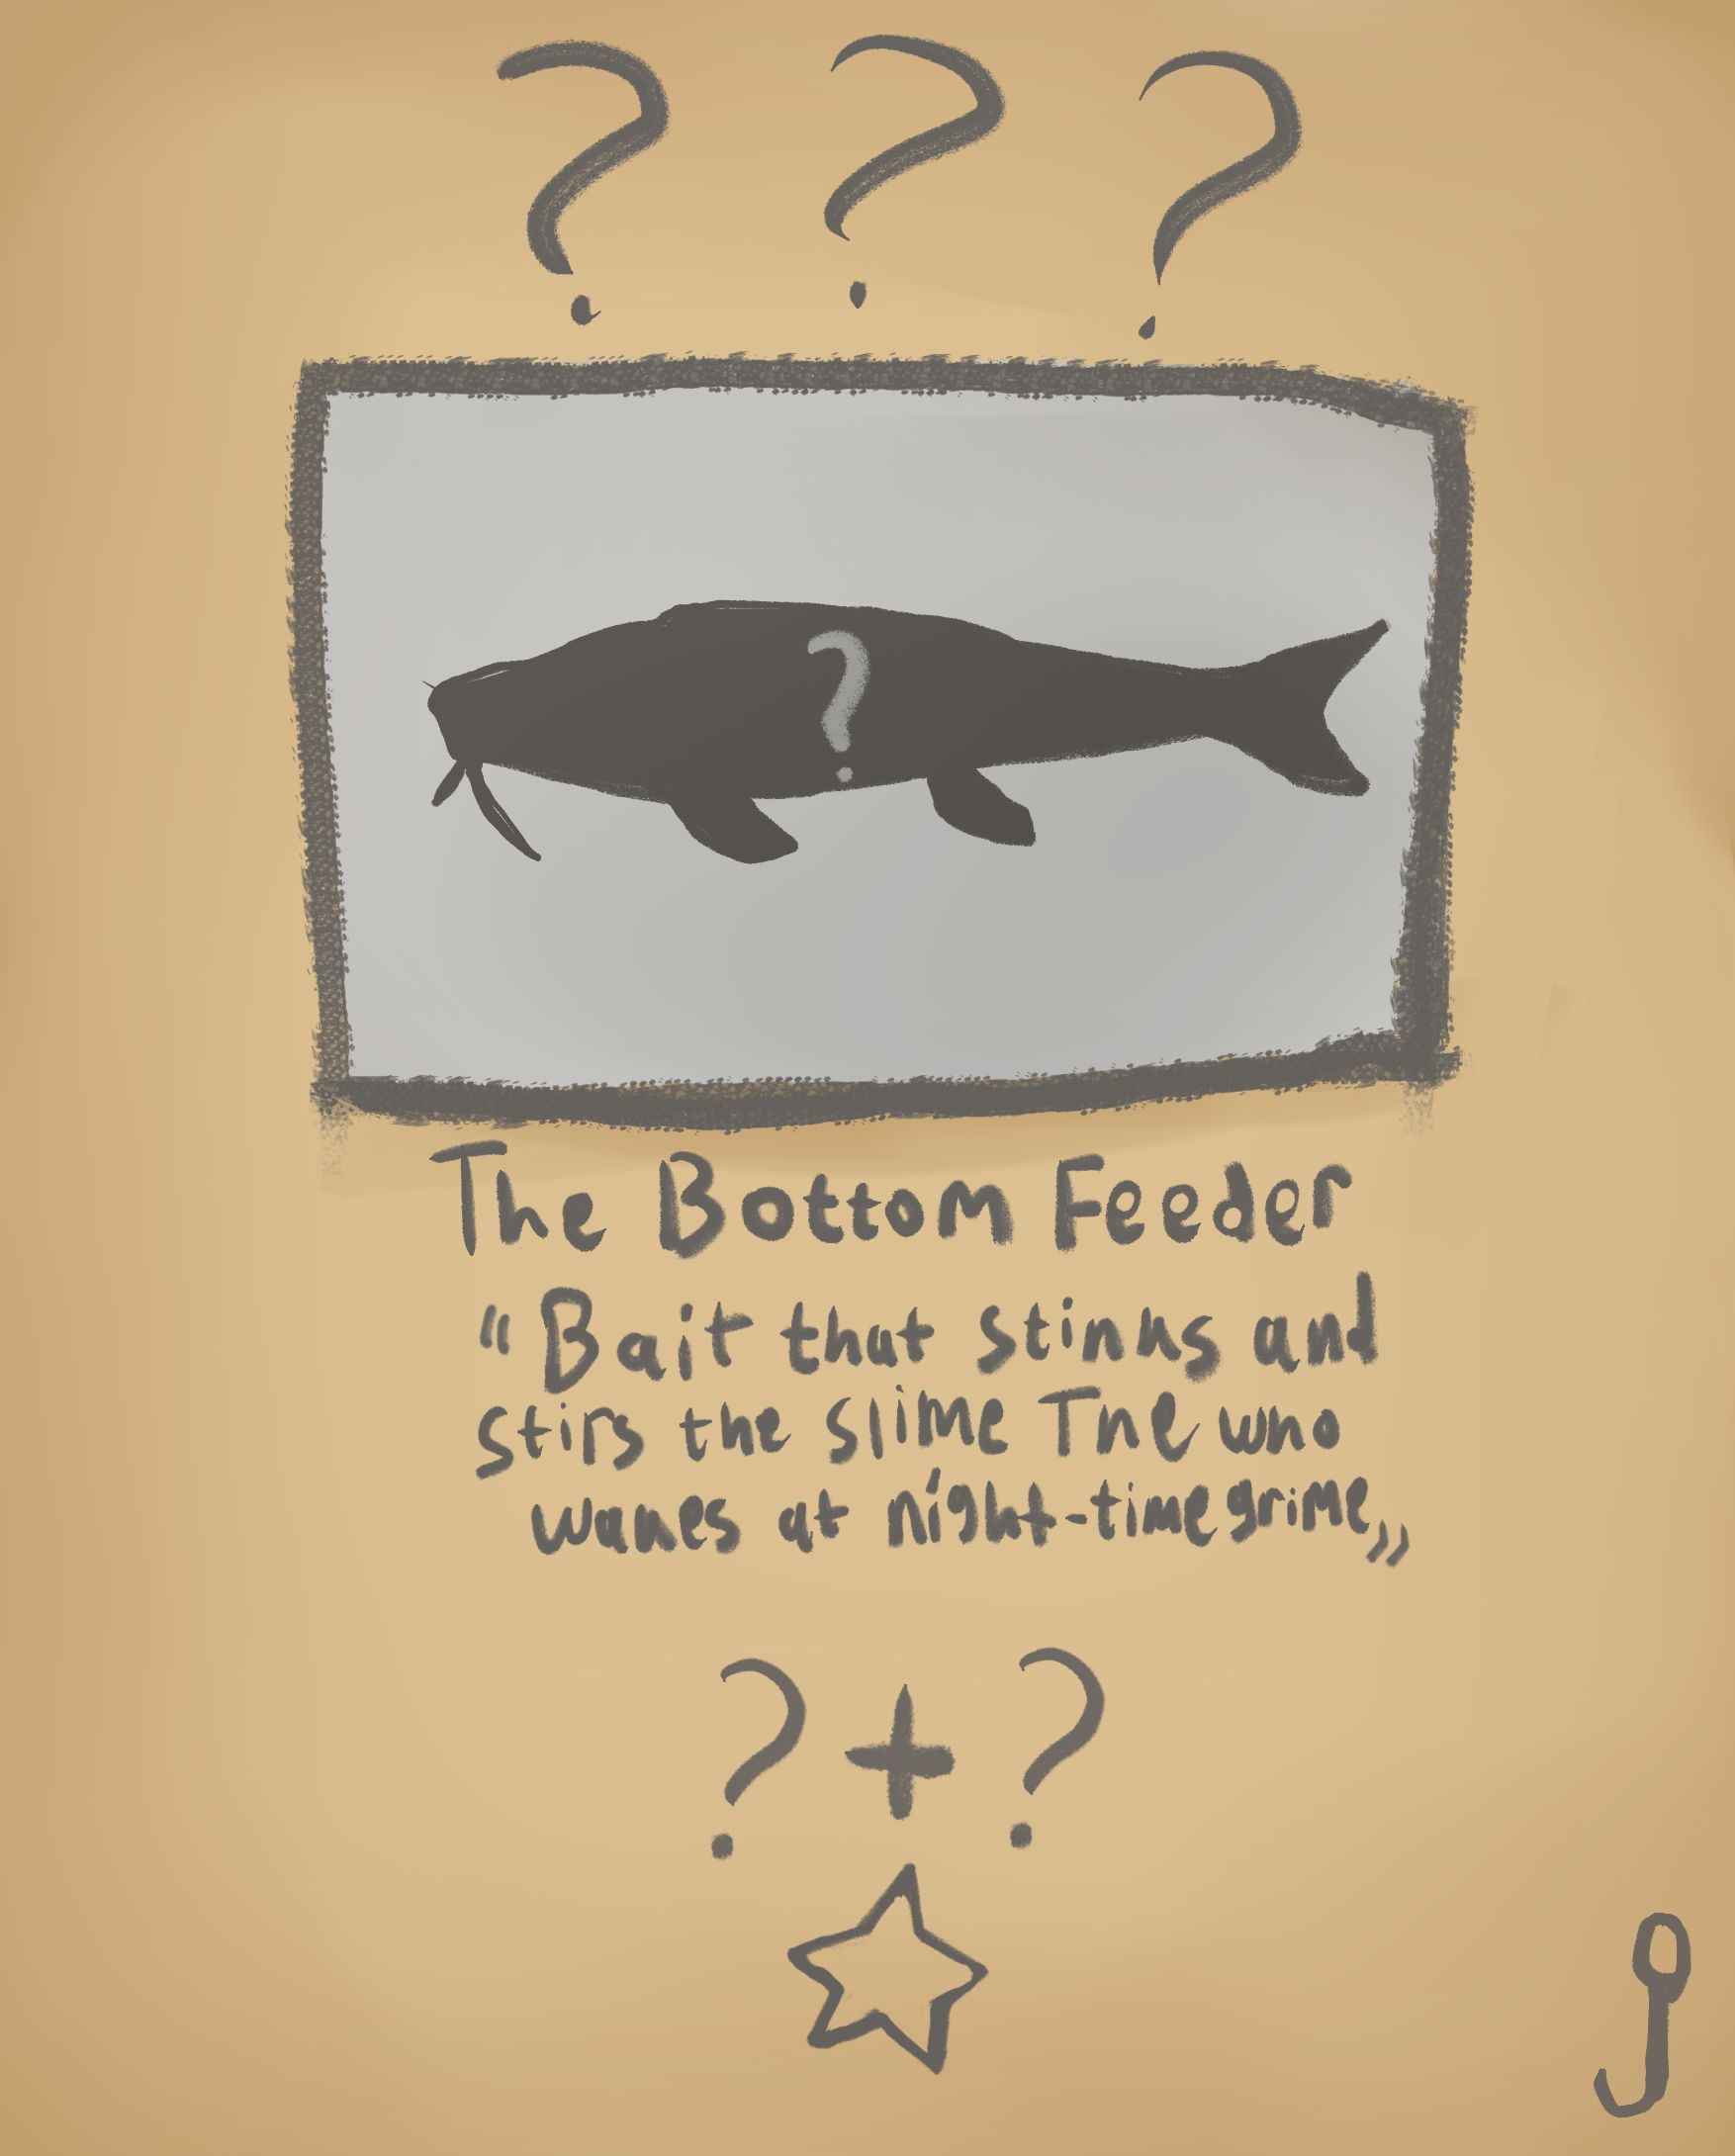 ? ? ?
?
The Bottom Feeder
“Bait that stinks and
stirs the slime The who
wakes at night-time grime„
? + ?